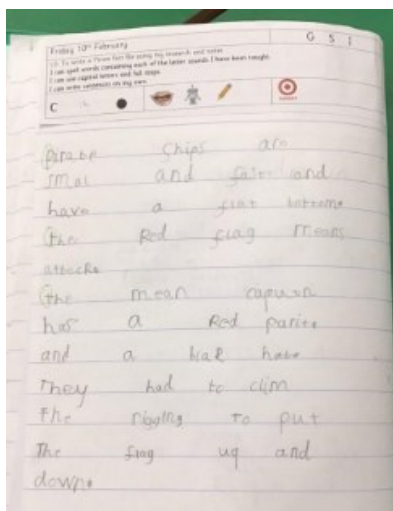 Friday 10th February
G S I
LO: To write a Pirate fact file using my research and notes
I can spell words containing each of the letter sounds I have been taught.
I can use capital letters and full stops.
I can write sentences on my own.
C
pirate ships are
smal and and
have a flat bottome
the Red flag means
attacke
the mean
has a Red
and a
They had to clim
the rigging To put
The flag uq and
down.